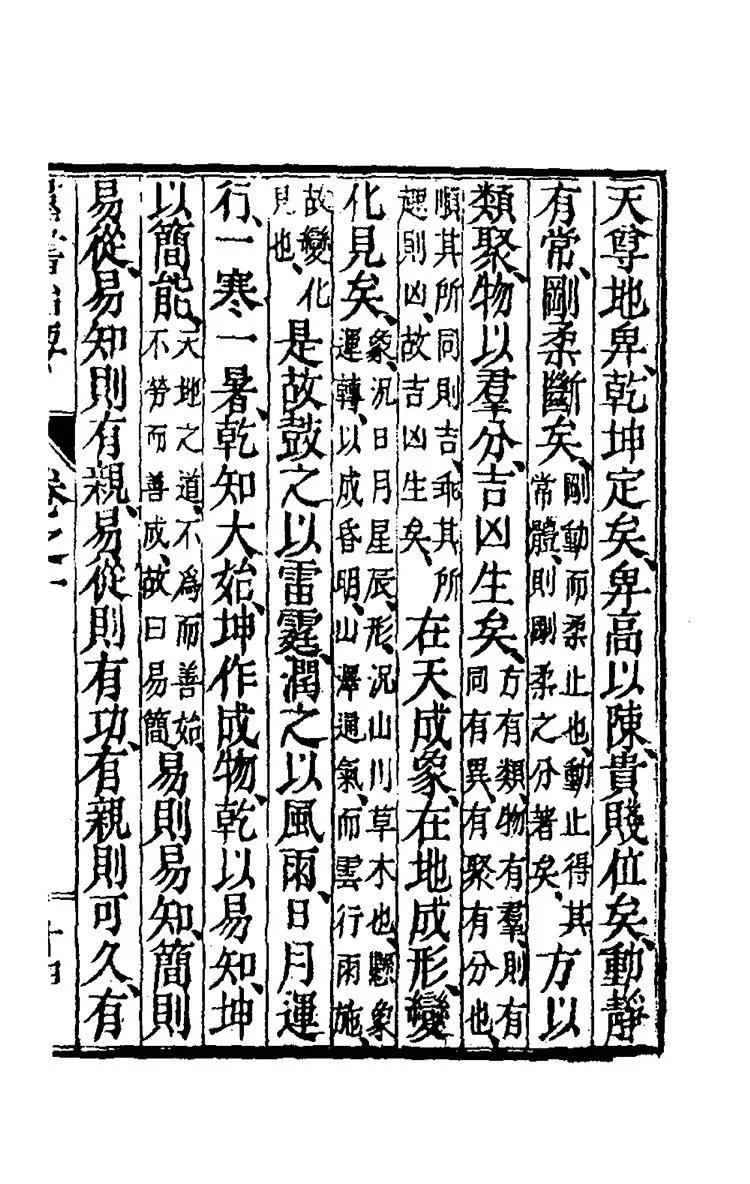 天尊地卑、乾坤定矣、卑高以陳、貴賤位矣、動靜
有常、剛柔斷矣、剛動而柔止也、動止得其常體、則剛柔之分著矣、方以
類聚、物以羣分、吉凶生矣、方有類、物有羣、則有同有異、有聚有分也、
順其所同則吉、乖其所趣則凶、故吉凶生矣、在天成象、在地成形、變
化見矣、象、況日月星辰、形、況山川草木也、懸象運轉、以成昏明、山澤通氣、而雲行雨施、
故變化見也、是故鼓之以雷霆、潤之以風雨、日月運
行、一寒一暑、乾知大始、坤作成物、乾以易知、坤
以簡能、天地之道、不為而善始、不勞而善成、故曰易簡易則易知、簡則
易從、易知則有親、易從則有功、有親則可久、有